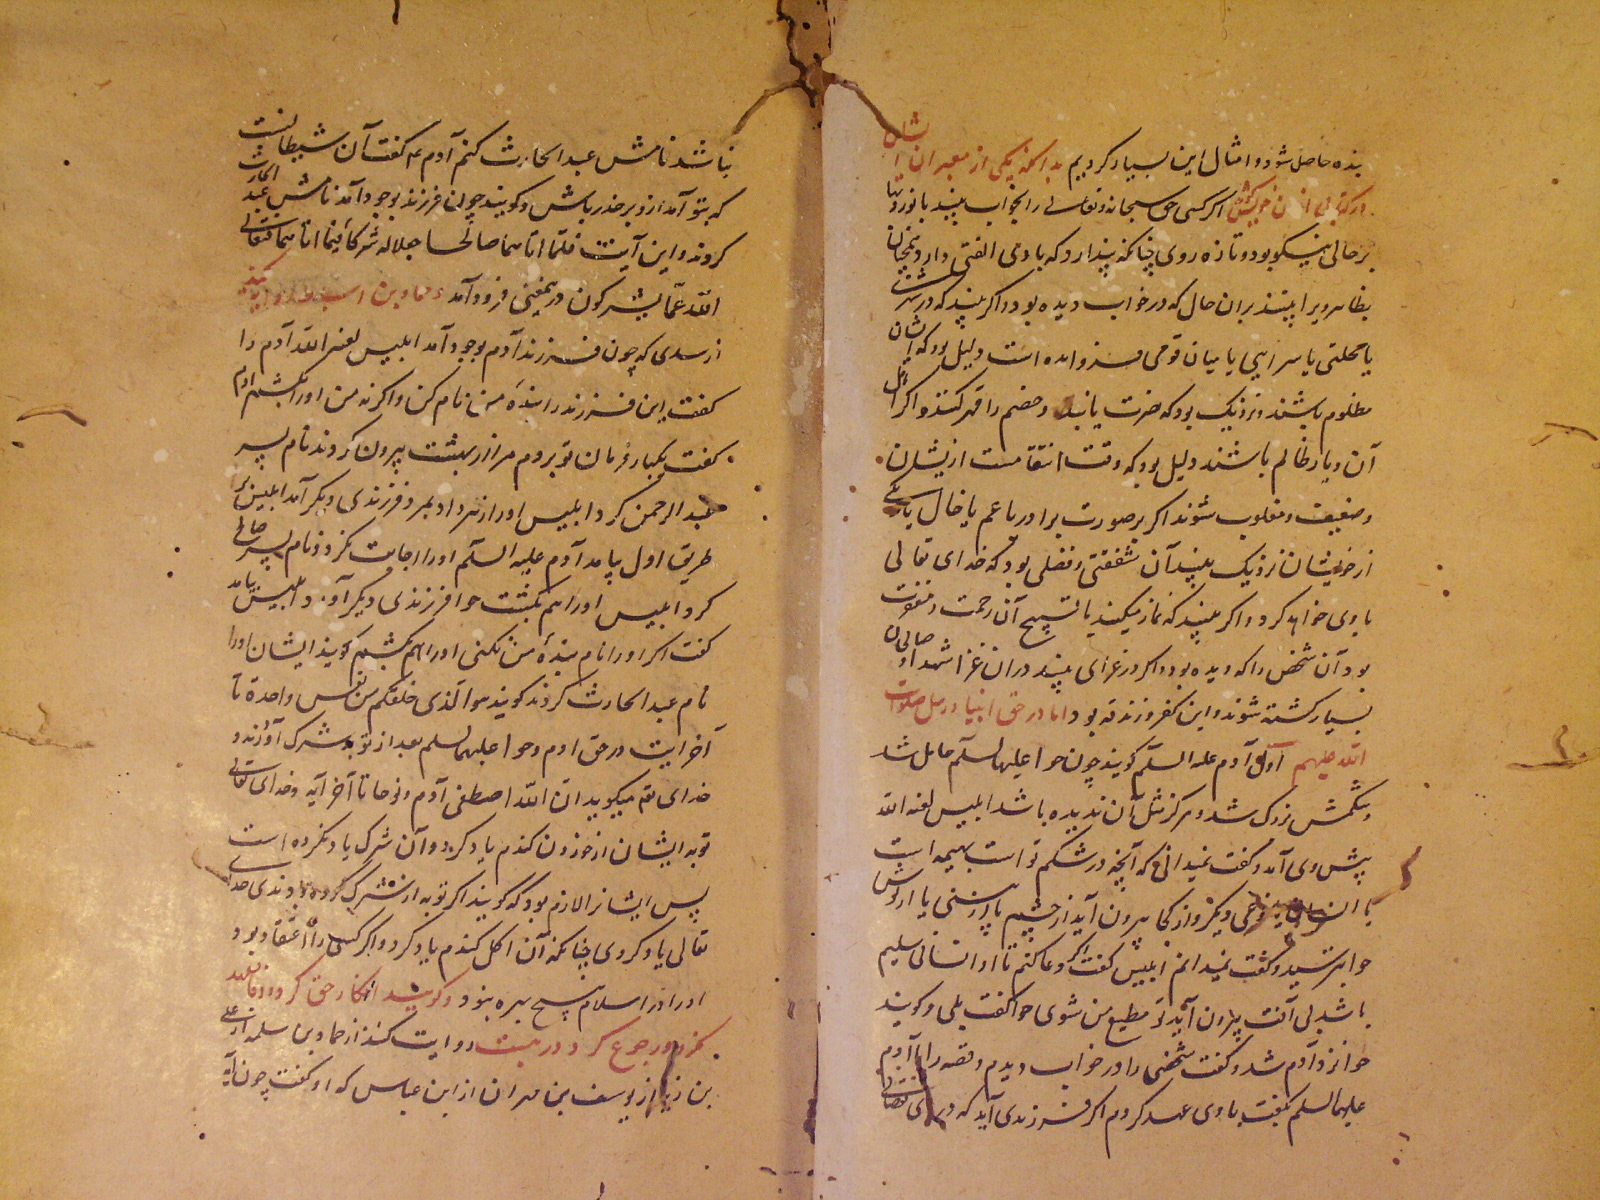 بنده حاصل شود و امثال این بسیار کردیم بدانکه یکی از معبران
اگر کسی حق سبحانه و تعالی را بخواب بیند با نور و بها
بر حالی نیکو بود و تازه روی چنانکه پندارد که با وی الفتی دارد همچنان
بظاهر ویرا بینند بران حال که در خواب دیده بود و اگر بیند که در شهر
یا محلتی یا سرایی یا میان قومی فرو آمده است دلیل بود که ایشان
مظلوم باشند و نزدیک بود که نصرت یابند و خصم را قهر کنند و اگر اهل
آن دیار ظالم باشند دلیل بود که وقت انتقامست ازیشان
و ضعیف و مغلوب شوند اگر بر صورت برادر یا عم یا خال یا یکی
از خویشان نزدیک بیند آن شفقتی و فضلی بود که خدای تعالی
با وی خواهد کرد و اگر بیند که نماز میکند یا تسبیح آن رحمت و مغفرت
بود آن شخص را که دیده بود و اگر در غزای بیند در ان غزا شهدا و صالحان
بسیار کشته شوند و این کفر و زندقه بود اما در حق انبیا و رسل صلوات
الله علیهم اول آدم علیه السلام گویند چون حوا علیها السلم حامل شد
و شکمش بزرک شد و هرگز مثل آن ندیده باشد ابلیس لعنه الله
پیش وی آمد و گفت نمیدانی که آنچه در شکم تو است بهیمه است
یا انسان دیگر و از کجا بیرون آید از چشم یا از بینی یا از گوش
حوا بترسید و گفت نمیدانم ابلیس گفت اگر دعا کنم تا او انسانی سلیم
باشد بی آفت بیرون آید تو مطیع من شوی حوا گفت بلی و گویند
حوا نزد آدم شد و گفت شخصی را در خواب دیدم و قصه را با آدم
علیهما السلم بگفت با وی عهد کردم اگر فرزندی آید که
نباشد نامش عبد الحارث کنم آدم ع گفت آن شیطانست
که بتو آمد ازو بر حذر باش و گویند چون فرزند بوجود آمد نامش عبد الحارث
کردند و این آیت فلما اتاهما صالحا جعلا له شرکاء فیما اتاهما فتعالی
الله عما یشرکون در همعنی فرود آمد
از سدی که چون فرزند آدم بوجود آمد ابلیس لعنه الله آدم را
گفت این فرزند را بندهٔ من نام کن و اگر نه من او را بکشم آدم
گفت یکبار فرمان تو بردم مرا از بهشت بیرون کردند نام پسر
عبد الرحمن کرد ابلیس او را زهر داد بمرد فرزندی دیگر آمد ابلیس
طریق اول پیامد آدم علیه السلام او را اجابت نکرد و نام پسر صالح
کرد ابلیس او را هم بکشت حوا فرزندی دیگر آورد ابلیس بیامد
گفت اگر او را نام بندهٔ من نکنی او را هم بکشم گویند ایشان او را
نام عبد الحارث کردند گویند هو الذی خلقکم من نفس واحدة تا
آخر ایت در حق آدم و حوا علیهما السلم بعد از توبه بشرک آوردند و
خدای تعالی میگوید ان الله اصطفی آدم و نوحا تا آخر آیه و خدای تعالی
توبه ایشان از خوردن گندم یاد کرد و آن شرک یاد نکرده است
پس ایشانرا لازم بود که گویند اگر توبه از شرک کرده بودندی خدای
تعالی یاد کردی چنانکه آن اکل گندم یاد کرد و اگر کسی را اعتقاد بود
او را در اسلام هیچ بهره نبود و گویند انکار حق کرد و
رجوع کرد در بهشت روایت کند از حماد بن سلمه از علی
بن زید از یوسف بن مهران از ابن عباس که او گفت چون آیه